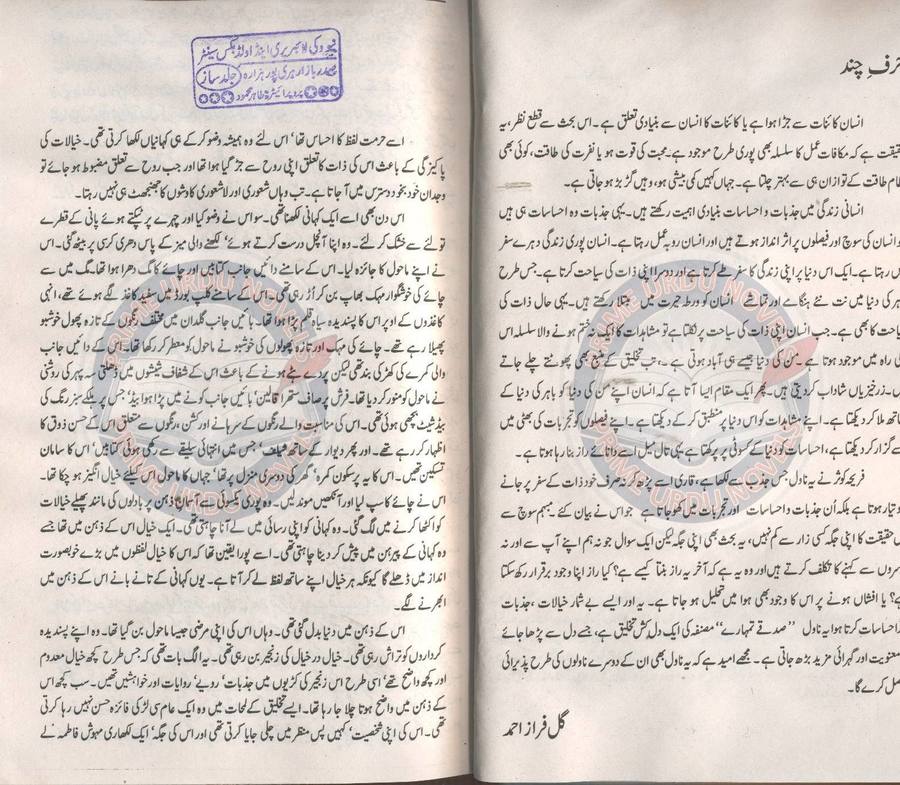 حرفِ چند
انسان کائنات سے جڑا ہوا ہے یا کائنات کا انسان سے بنیادی تعلق ہے۔ اس بحث سے قطع نظر، یہ
حقیقت ہے کہ مکافات عمل کا سلسلہ بھی پوری طرح موجود ہے۔ محبت کی قوت ہو یا نفرت کی طاقت، کوئی بھی
نظام طاقت کے توازن ہی سے بہتر چلتا ہے۔ جہاں کہیں کمی بیشی ہو، وہیں گڑ بڑ ہو جاتی ہے۔
انسانی زندگی میں جذبات و احساسات بنیادی اہمیت رکھتے ہیں۔ یہی جذبات وہ احساسات ہی ہیں
جو انسان کی سوچ اور فیصلوں پر اثر انداز ہوتے ہیں اور انسان رو بہ عمل رہتا ہے۔ انسان پوری زندگی دہرے سفر
میں رہتا ہے۔ ایک اس دنیا پر اپنی زندگی کا سفر طے کرتا ہے اور دوسرا اپنی ذات کی سیاحت کرتا ہے۔ جس طرح
باہر کی دنیا میں نت نئے ہنگامے اور تماشے انسان کو ورطہ حیرت میں مبتلا رکھتے ہیں۔ یہی حال ذات کی
سیاحت کا بھی ہے۔ جب انسان اپنی ذات کی سیاحت پر نکلتا ہے تو مشاہدات کا ایک نہ ختم ہونے والا سلسلہ اس
کی راہ میں موجود ہوتا ہے۔ من کی دنیا جیسے ہی آباد ہوتی ہے۔، تب تخلیق کے منبع بھی پھوٹتے چلے جاتے
ہیں۔ زرخیزیاں شاداب کر دیتی ہیں۔ پھر ایک مقام ایسا آتا ہے کہ انسان اپنے من کی دنیا کو باہر کی دنیا کے
ساتھ ملا کر دیکھتا ہے۔ اپنے مشاہدات کو اس دنیا پر منطبق کر کے دیکھتا ہے۔ اپنے فیصلوں کو تجربات کی بھٹی میں
سے گزار کر دیکھتا ہے، احساسات کو دنیا کے کسوٹی پر پرکھتا ہے یہی تال میل اسے دانائے راز بنا رہا ہوتا ہے۔
فریحہ کوثر نے یہ ناول جس جذب سے لکھا ہے، قاری اسے پڑھ کر نہ صرف خود ذات کے سفر پر جانے
کو تیار ہوتا ہے بلکہ اُن جذبات و احساسات اور تجربات میں کھو جاتا ہے جو اس نے بیان کئے۔ مبہم سوچ سے
حقیقت کا اپنی جگہ کسی زار سے کم نہیں، یہ بحث بھی اپنی جگہ لیکن ایک سوال جو نہ ہم اپنے آپ سے اور نہ
دوسروں سے کہنے کا تکلف کرتے ہیں اور وہ یہ ہے کہ آخر یہ راز بنتا کیسے ہے؟ کیا راز اپنا وجود برقرار رکھ سکتا
ہے؟ یا افشاں ہونے پر اس کا وجود بھی ہوا میں تحلیل ہو جاتا ہے۔ یہ اور ایسے بے شمار خیالات ، جذبات
و احساسات کرتا ہوا یہ ناول ’’صدقے تمہارے‘‘ مصنفہ کی ایک دل کش تخلیق ہے، جسے دل سے پڑھا جائے
تو معنویت اور گہرائی مزید بڑھ جاتی ہے۔ مجھے امید ہے کہ یہ ناول بھی ان کے دوسرے ناولوں کی طرح پذیرائی
حاصل کرے گا۔
گل فراز احمد
نیو وکی لائبریری اینڈ اولڈ بکس سینٹر
صدر بازار ہری پور ہزارہ جلد ساز
پروپرائیٹر: طاہر محمود
اسے حرمت لفظ کا احساس تھا‘ اس لئے وہ ہمیشہ وضو کر کے ہی کہانیاں لکھا کرتی تھی۔ خیالات کی
پاکیزگی کے باعث اس کی ذات کا تعلق اپنی روح سے جڑ گیا ہوا تھا اور جب روح سے تعلق مضبوط ہو جائے تو
وجدان خود بخود دسترس میں آ جاتا ہے۔ تب وہاں شعوری اور لاشعوری کاوشوں کا جھنجھٹ ہی نہیں رہتا۔
اس دن بھی اسے ایک کہانی لکھنا تھی۔ سو اس نے وضو کیا اور چہرے پر ٹپکتے ہوئے پانی کے قطرے
تولئے سے خشک کر لئے۔ وہ اپنا آنچل درست کرتے ہوئے‘ لکھنے والی میز کے پاس دھری کرسی پر بیٹھ گئی۔ اس
نے اپنے ماحول کا جائزہ لیا۔ اس کے سامنے دائیں جانب کتابیں اور چائے کا مگ دھرا ہوا تھا۔ مگ میں سے
چائے کی خوشگوار مہک بھاپ بن کر اُڑ رہی تھی۔ اس کے سامنے کلپ بورڈ میں سفید کاغذ لگے ہوئے تھے، انہی
کاغذوں کے اوپر اس کا پسندیدہ سیاہ قلم پڑا ہوا تھا۔ بائیں جانب گلدان میں مختلف رنگوں کے تازہ پھول خوشبو
پھیلا رہے تھے۔ چائے کی مہک اور تازہ پھولوں کی خوشبو نے ماحول کو معطر کر رکھا تھا۔ اس کے دائیں جانب
والی کمرے کی کھڑکی بند تھی لیکن پردے ہٹے ہونے کے باعث اس کے شفاف شیشوں میں ڈھلتی سہ پہر کی روشنی
نے ماحول کو منور کر دیا تھا۔ فرش پر صاف ستھرا قالین‘ بائیں جانب کونے میں پڑا ہوا بیڈ‘ جس پر ہلکے سبز رنگ کی
بیڈ شیٹ بچھی ہوئی تھی۔ اس کی مناسبت والے رنگوں کے سرہانے اور کشن، رنگوں سے متعلق اس کے حسن ذوق کا
اظہار کر رہے تھے۔ اور پھر دیوار کے ساتھ شیلف‘ جس میں انتہائی سلیقے سے رکھی ہوئی کتابیں‘ اس کا سامان
تسکین تھیں۔ اس کا یہ پر سکون کمرہ‘ گھر کی دوسری منزل پر تھا‘ جہاں کا ماحول اس کیلئے خیال انگیز ہو چکا تھا۔
اس نے چائے کا سپ لیا اور آنکھیں موند لیں۔ وہ پوری یکسوئی سے آسمان ذہن پر بادلوں کی مانند پھیلے خیالات
کو اکٹھا کرنے میں لگ گئی۔ وہ کہانی کو اپنی رسائی میں لے آنا چاہتی تھی۔ ایک خیال اس کے ذہن میں تھا جسے
وہ کہانی کے پیرہن میں پیش کر دینا چاہتی تھی۔ اسے پورا یقین تھا کہ اس کا خیال لفظوں میں بڑے خوبصورت
انداز میں ڈھلے گا کیونکہ ہر خیال اپنے ساتھ لفظ لے کر آتا ہے۔ یوں کہانی کے تانے بانے اس کے ذہن میں
ابھرنے لگے۔
اس کے ذہن میں دنیا بدل گئی تھی۔ وہاں اس کی اپنی مرضی جیسا ماحول بن گیا تھا۔ وہ اپنے پسندیدہ
کرداروں کو تراش رہی تھی۔ خیال در خیال کی زنجیر بن رہی تھی۔ یہ الگ بات تھی کہ جس طرح کچھ خیال معدوم
اور کچھ واضح تھے‘ اسی طرح اس زنجیر کی کڑیوں میں جذبات‘ رویے‘ روایات اور خواہشیں تھیں۔ سب کچھ اس
کے ذہن میں واضح ہوتا چلا جا رہا تھا۔ ایسے تخلیق کے لمحات میں وہ ایک عام سی لڑکی فائزہ حسن نہیں رہا کرتی
تھی۔ اس کی اپنی شخصیت‘ کہیں پس منظر میں چلی جایا کرتی تھی اور اس کی جگہ‘ ایک لکھاری مہوش فاطمہ لے
PRIME URDU NOVELS
PRIME URDU NOVELS